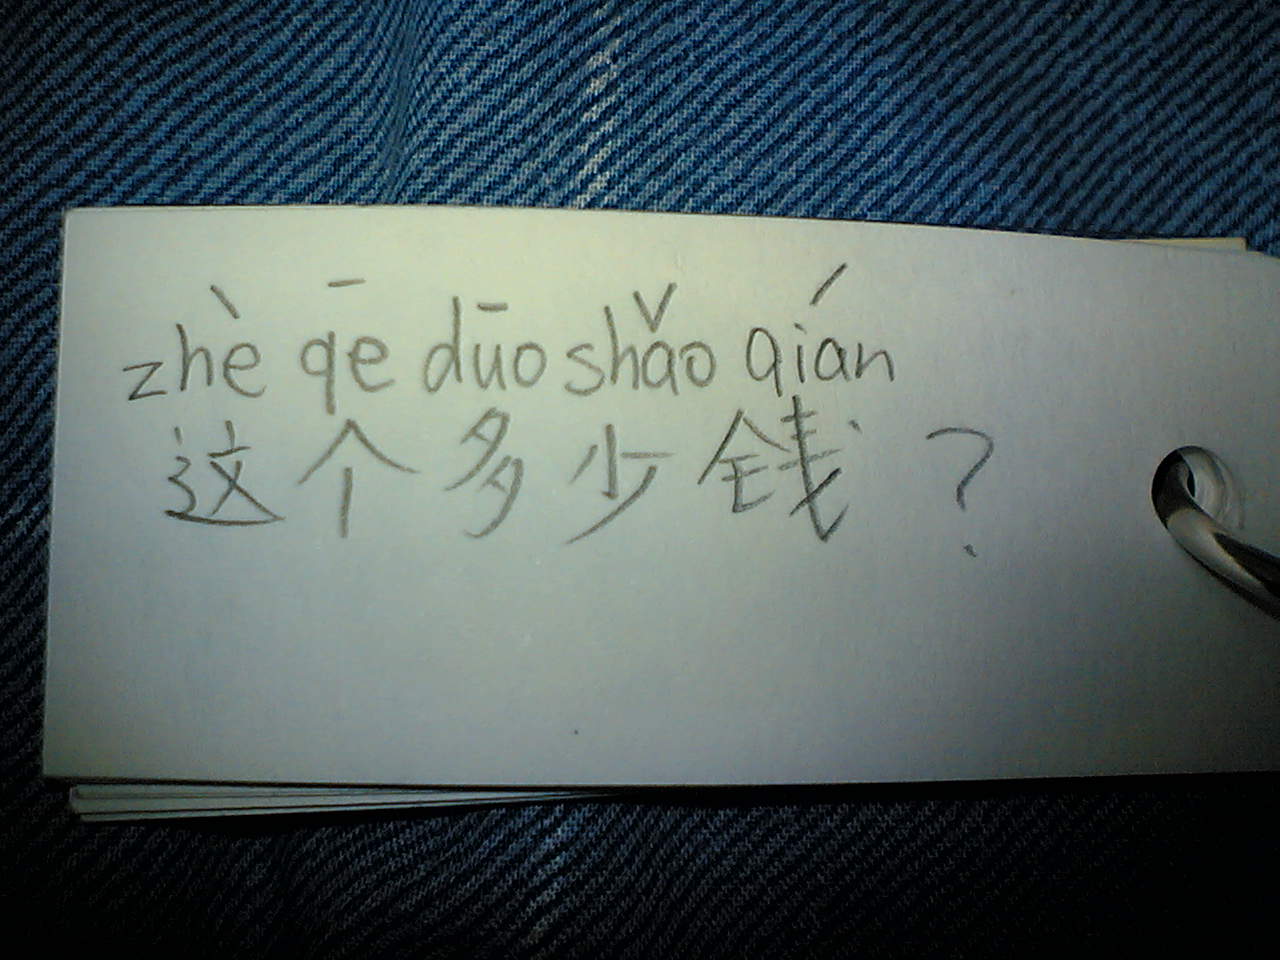 zhè qē duōshǎo qián
这个多少钱？